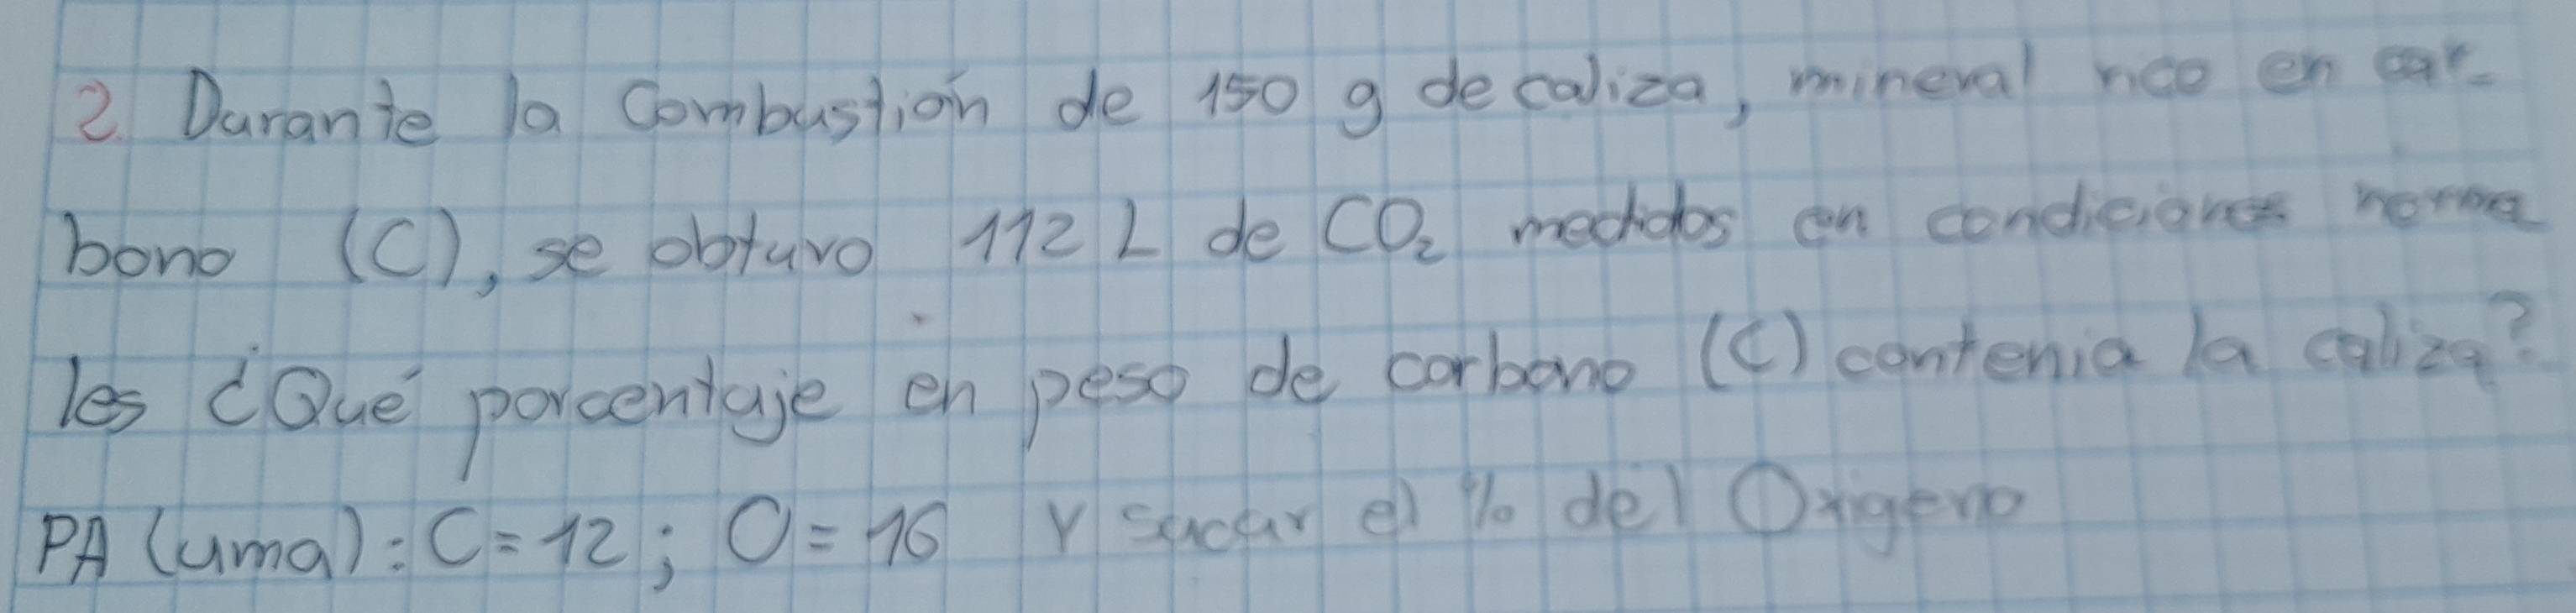 2. Durante la Combustión de 150 g de caliza, mineral rico en car-
bono (C), se obtuvo 112 L de CO₂ medidos en condiciones norma
les ¿Qué porcentaje en peso de carbono (C) contenia la caliza?
PA (uma): C = 12 ; O = 16 Y sacar el % del Oxigeno